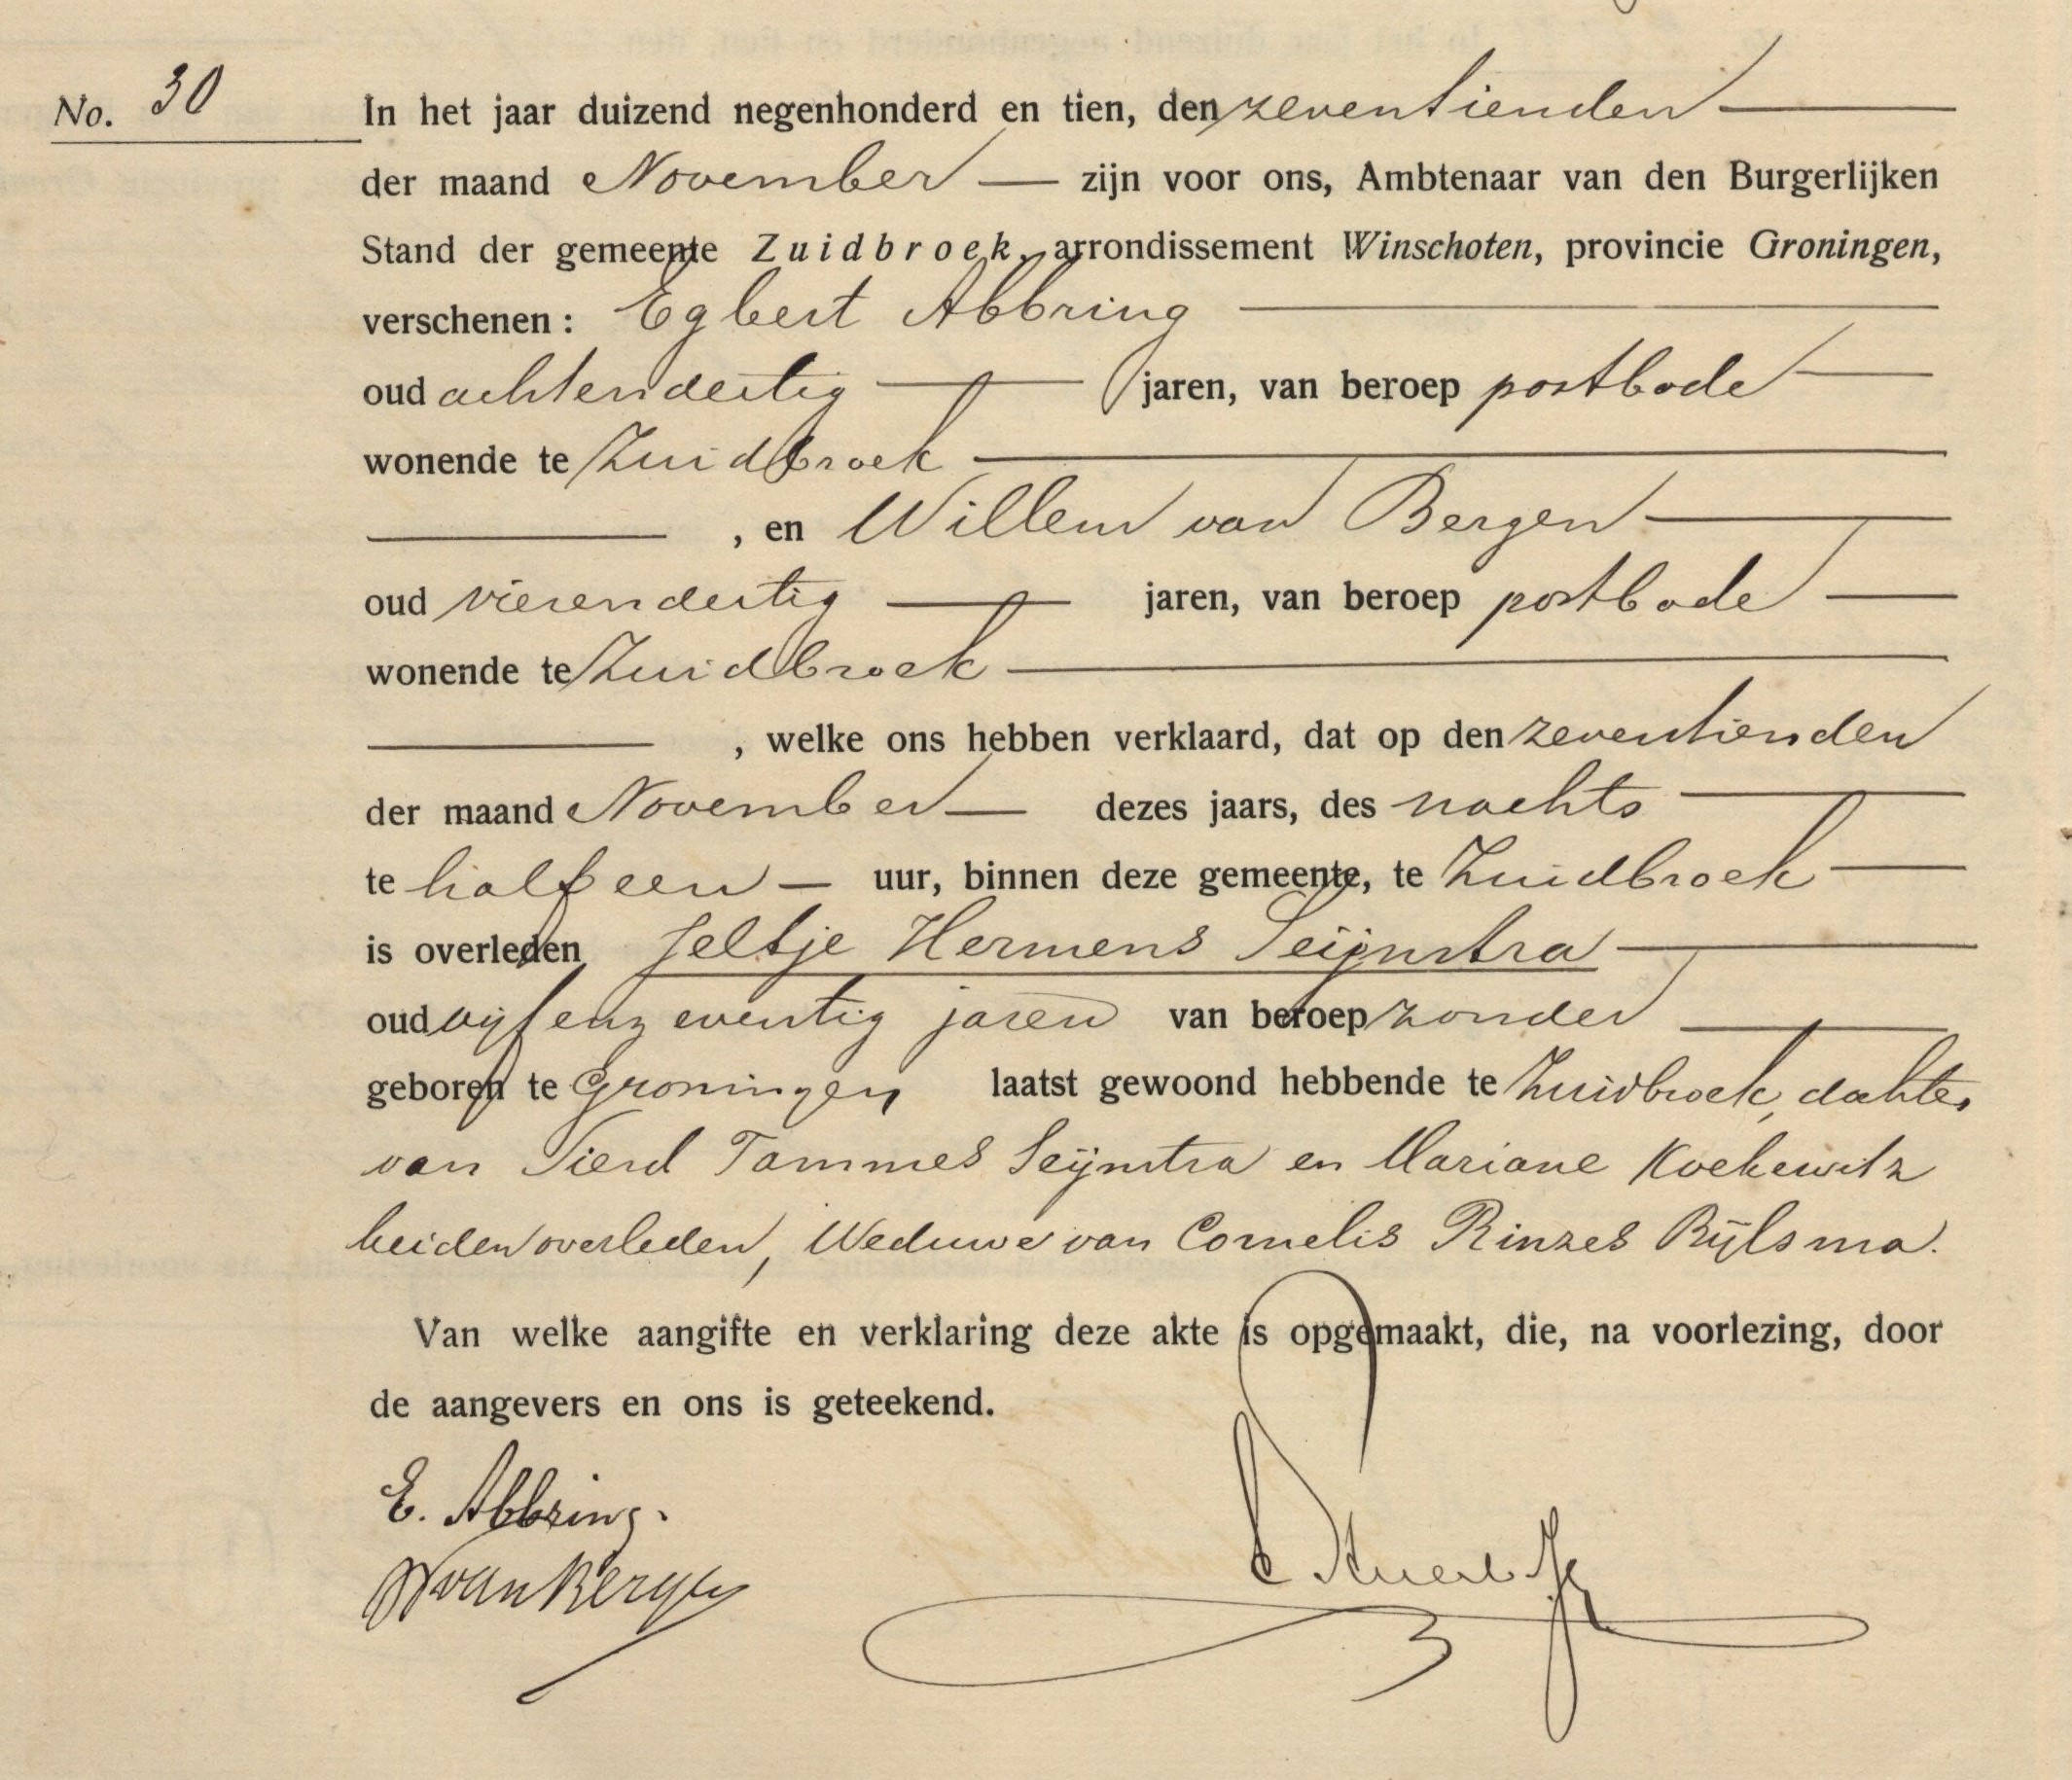 No. 30
In het jaar duizend negenhonderd en tien, den zeventienden
der maand November zijn voor ons, Ambtenaar van den Burgerlijken
Stand der gemeente Zuidbroek, arrondissement Winschoten, provincie Groningen,
verschenen: Egbert Abbring
oud achtendertig jaren, van beroep postbode
wonende te Zuidbroek
, en Willem van Bergen
oud vierendertig jaren, van beroep postbode
wonende te Zuidbroek
, welke ons hebben verklaard, dat op den zeventienden
der maand November dezes jaars, des nachts
te half een uur, binnen deze gemeente, te Zuidbroek
is overleden Jeltje Hermens Seijnstra
oud vijfenzeventig jaren van beroep zonder
geboren te Groningen laatst gewoond hebbende te Zuidbroek, dochter
van Sierd Tammes Seijnstra en Mariane Koekewitz
beiden overleden, Weduwe van Cornelis Rinzes Bijlsma.
Van welke aangifte en verklaring deze akte is opgemaakt, die, na voorlezing, door
de aangevers en ons is geteekend.
E. Abbring.
W van Bergen